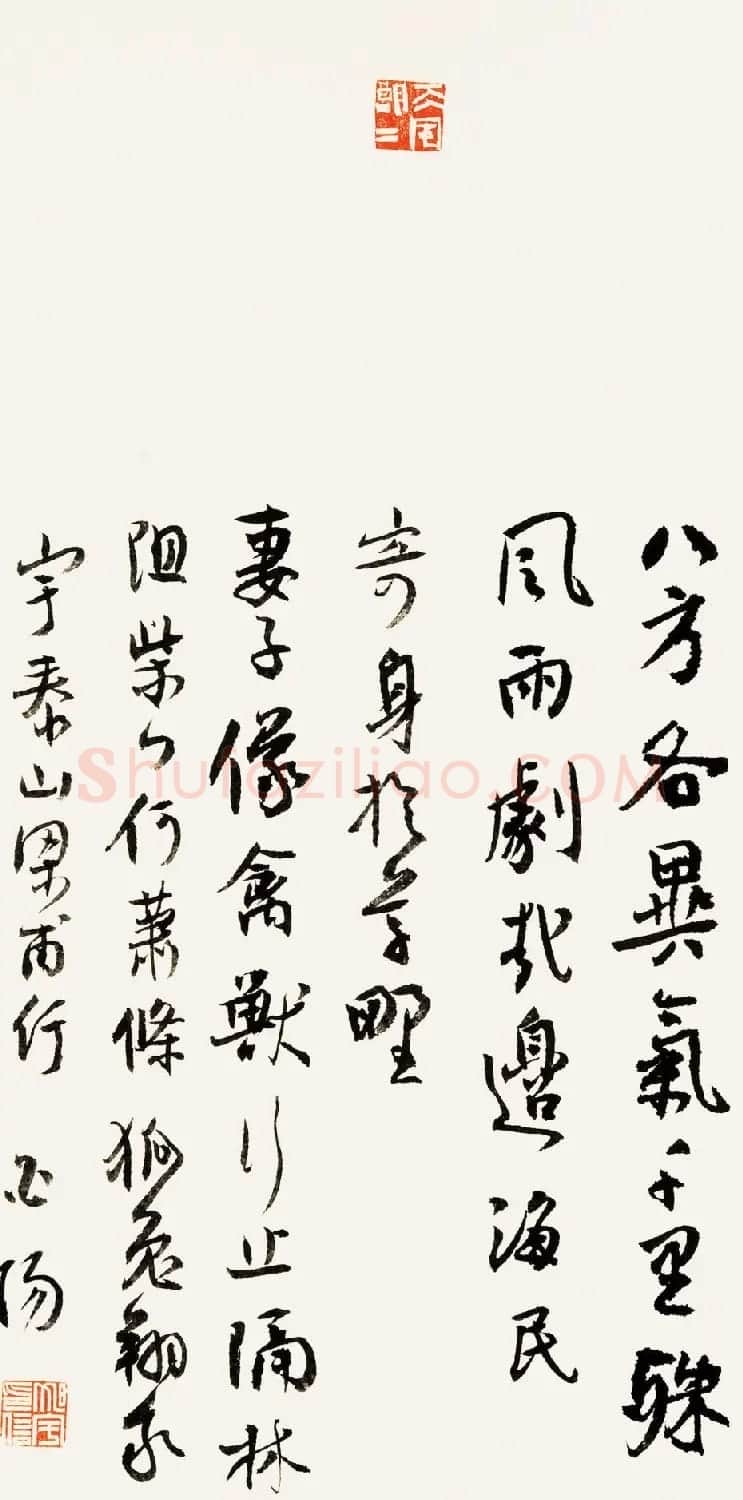 八方各異氣千里殊
風雨劇哉邊海民
寄身於草野
妻子像禽獸行止隔林
阻柴門何蕭條狐兔翔我
宇泰山梁甫行 陽
Shufaziliao.COM